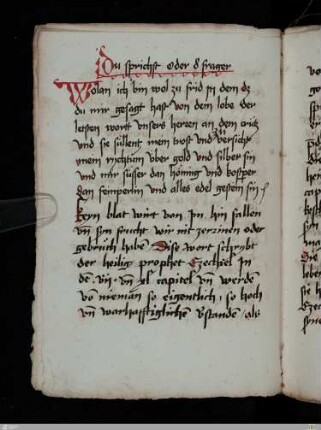 Du sprichst oder d frager
Wolan ich bin wol zu frid in dem dz
du mir gesagt hast von dem lobe der
letsten wortt unsers herren an dem critz
und sie süllent mein trost und zuversicht
mein richtum über gold und silber sin
und mir süsser dan hönnig und kostper
dan femperlin und alles edel gestein sin
Keyn blat würt van Im hin fallen
vn sin frucht wir nit zerrinen oder
gebruch haben Dise wort schribt
der heilig prophet Ezechiel In
de · vii · vn xl capitel vn werden
vo nieman so eigentlich, so hoch
vn warhafftiglichen v̈standen / als